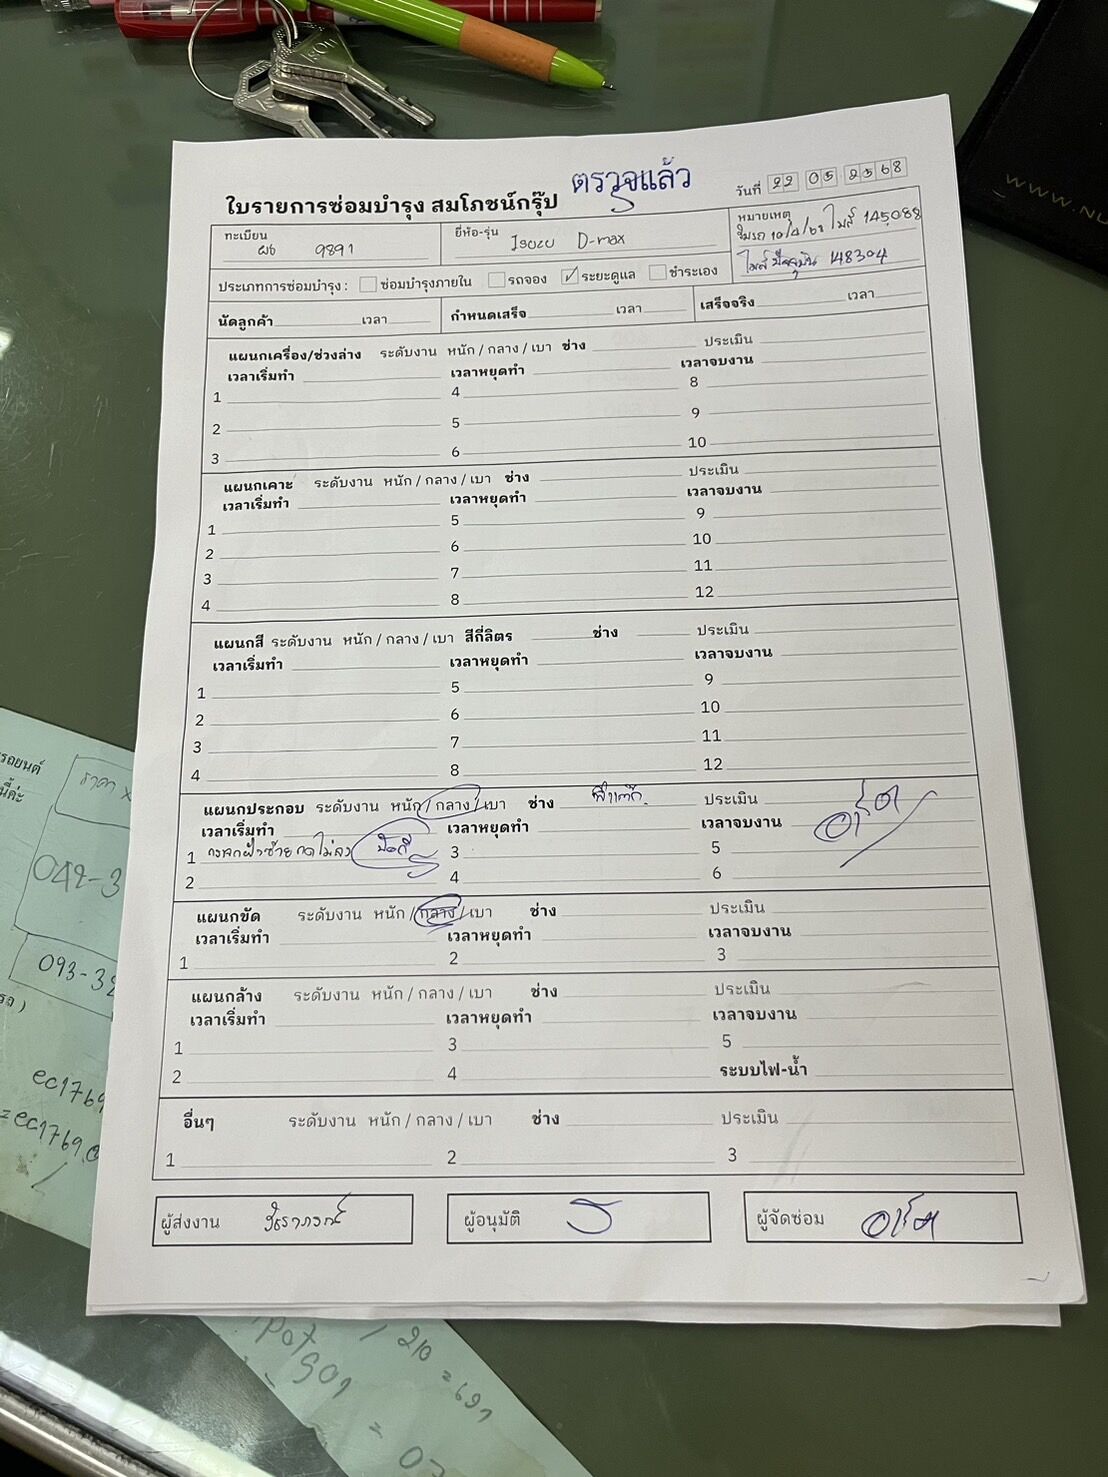 ตรวจแล้ว
วันที่ 22 05 2568
ใบรายการซ่อมบำรุง สมโภชน์กรุ๊ป
ทะเบียน 9891
ยี่ห้อ-รุ่น Isuzu D-max
หมายเหตุ
10/4/68 ไมล์ 145088
ไมล์ปัจจุบัน 148304
ประเภทการซ่อมบำรุง : ซ่อมบำรุงภายใน รถจอง ✓ ระยะดูแล ชำระเอง
นัดลูกค้า เวลา กำหนดเสร็จ เวลา เสร็จจริง เวลา
แผนกเครื่อง/ช่วงล่าง ระดับงาน หนัก / กลาง / เบา ช่าง ประเมิน
เวลาเริ่มทำ เวลาหยุดทำ เวลาจบงาน
1 4 8
2 5 9
3 6 10
แผนกเคาะ ระดับงาน หนัก / กลาง / เบา ช่าง ประเมิน
เวลาเริ่มทำ เวลาหยุดทำ เวลาจบงาน
1 5 9
2 6 10
3 7 11
4 8 12
แผนกสี ระดับงาน หนัก / กลาง / เบา สีกี่ลิตร ช่าง ประเมิน
เวลาเริ่มทำ เวลาหยุดทำ เวลาจบงาน
1 5 9
2 6 10
3 7 11
4 8 12
แผนกประกอบ ระดับงาน หนัก / กลาง / เบา ช่าง ประเมิน
เวลาเริ่มทำ เวลาหยุดทำ เวลาจบงาน
1 กระจกฝั่งซ้ายกดไม่ลง 3 5
2 4 6
แผนกขัด ระดับงาน หนัก / กลาง / เบา ช่าง ประเมิน
เวลาเริ่มทำ เวลาหยุดทำ เวลาจบงาน
1 2 3
แผนกล้าง ระดับงาน หนัก / กลาง / เบา ช่าง ประเมิน
เวลาเริ่มทำ เวลาหยุดทำ เวลาจบงาน
1 3 5
2 4 ระบบไฟ-น้ำ
อื่นๆ ระดับงาน หนัก / กลาง / เบา ช่าง ประเมิน
1 2 3
ผู้ส่งงาน
ผู้อนุมัติ
ผู้จัดซ่อม
รถยนต์
นี้ค่ะ
ราคา x
042-3
093-32
รถ )
ec1769
=ec1769.
/ 210 = 691
WWW.NU